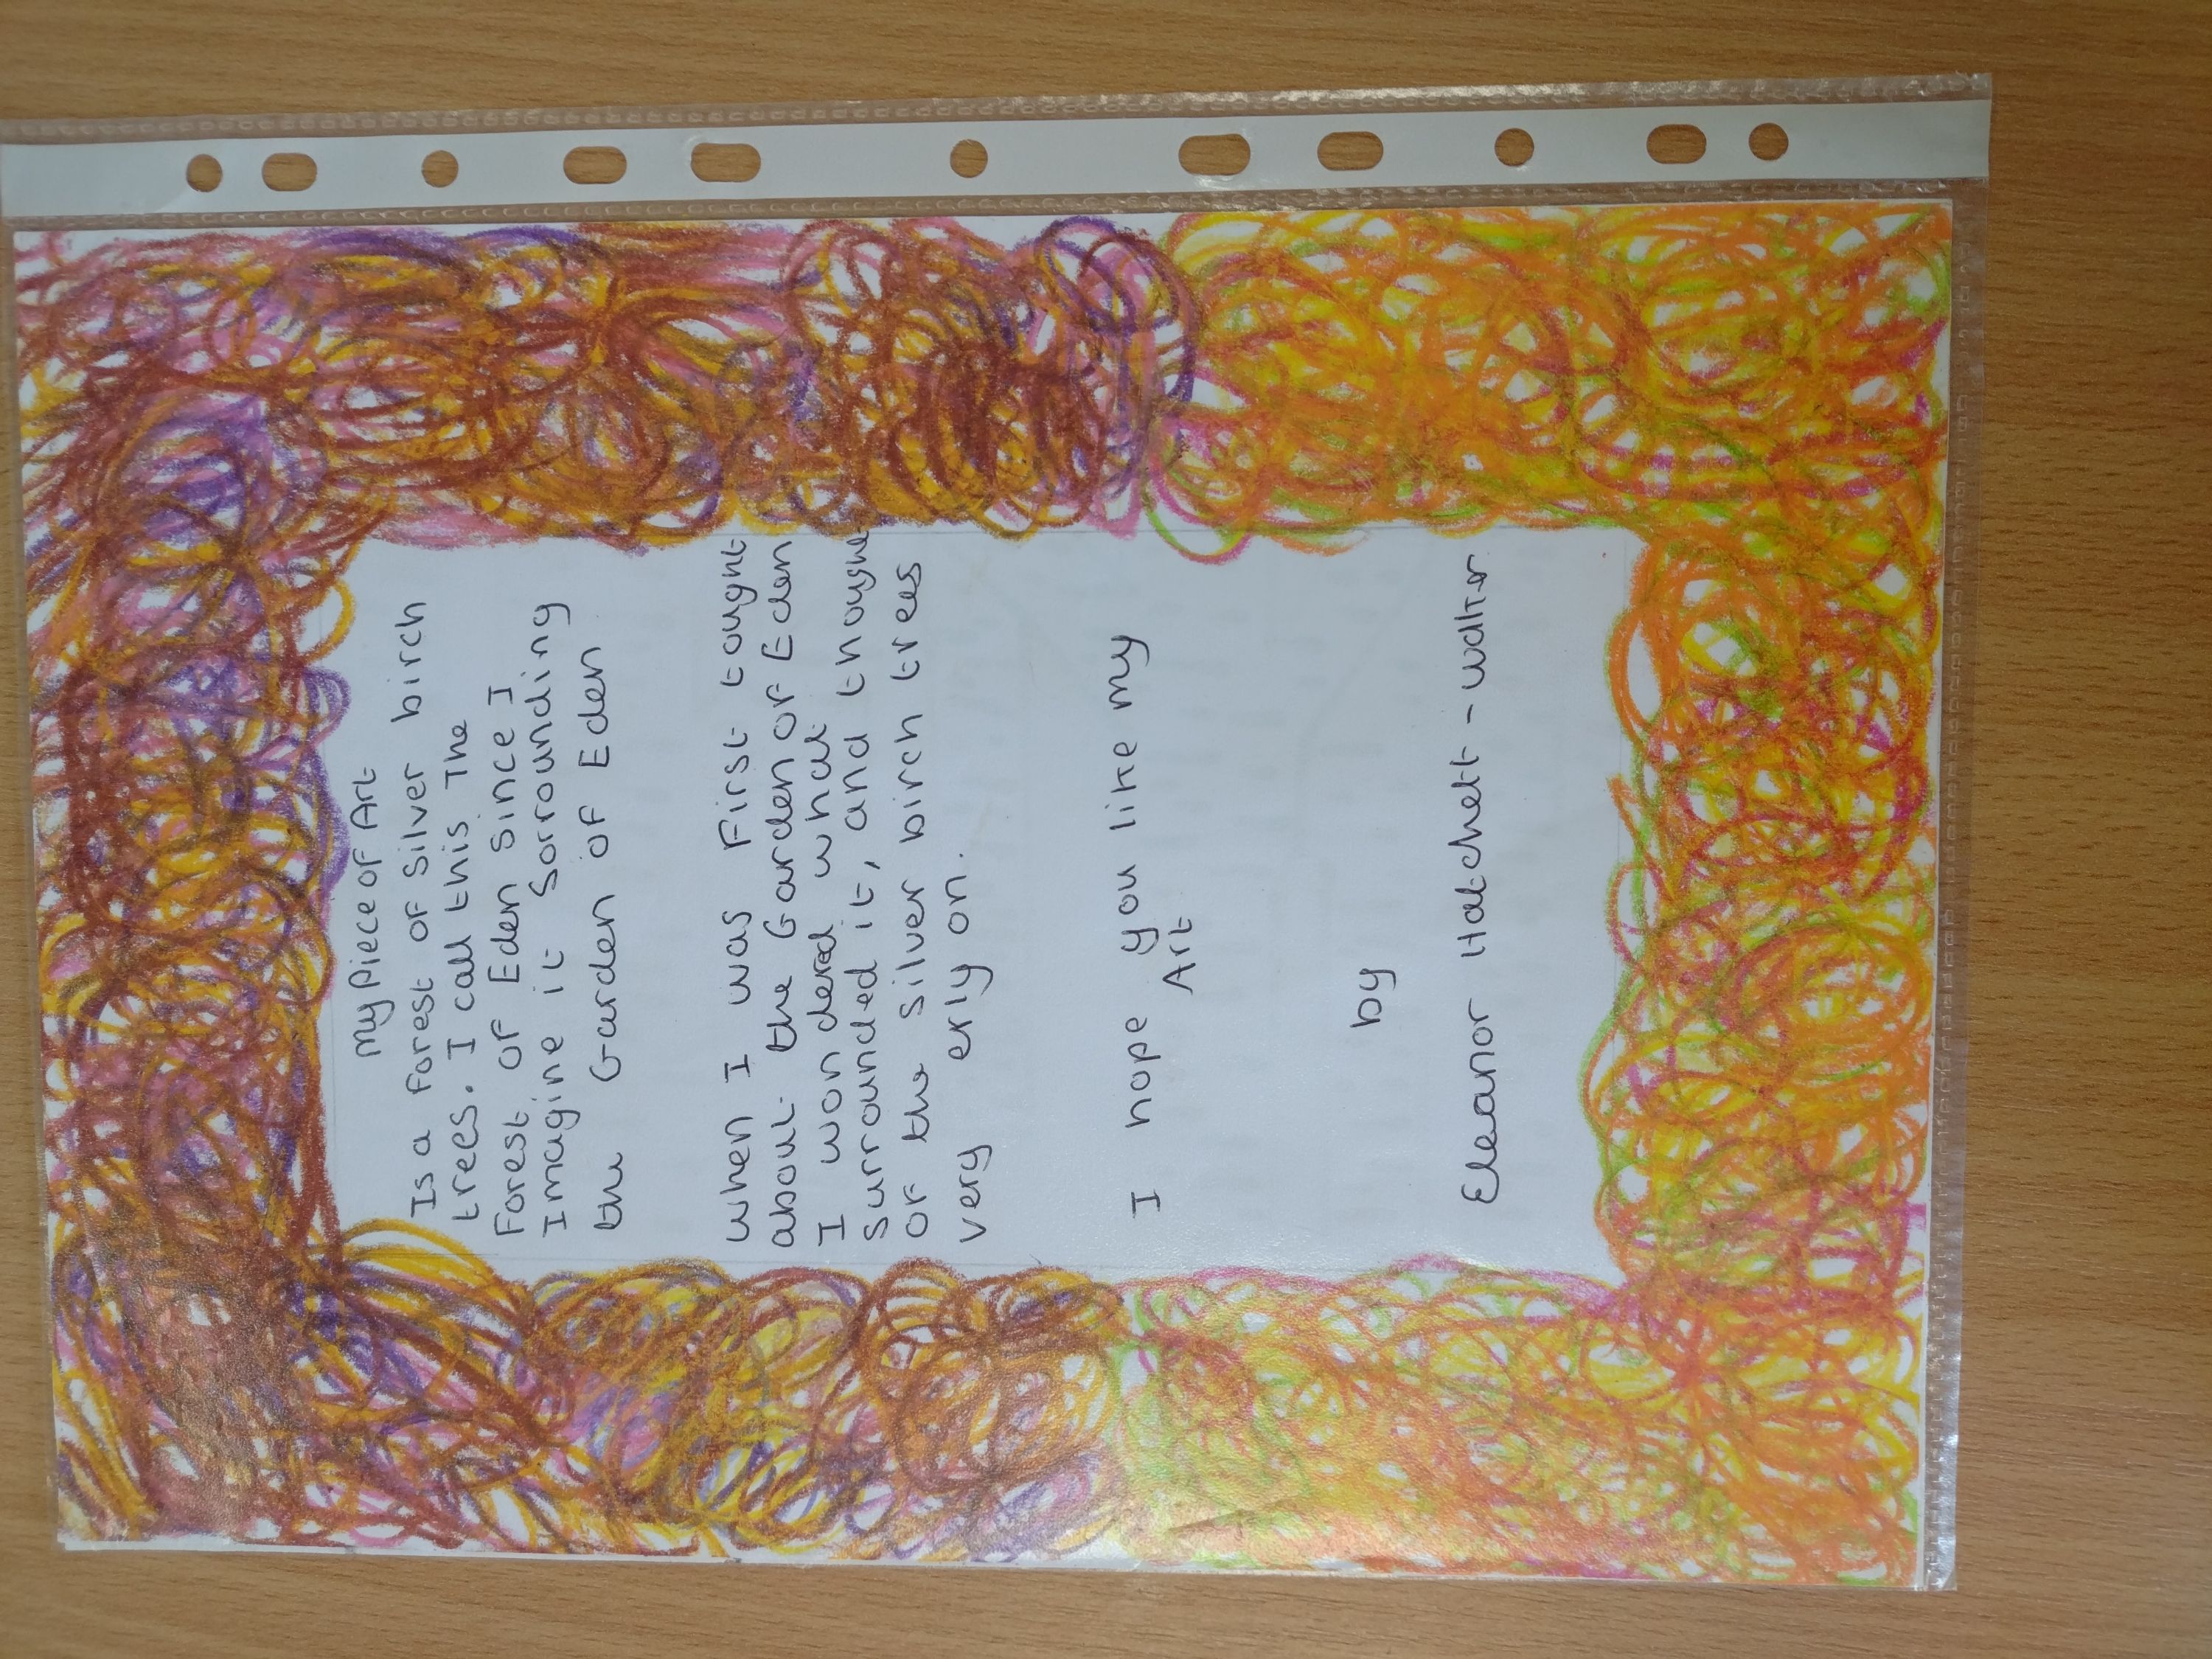 My Piece of Art
Is a forest of silver birch
trees. I call this The
Forest of Eden since I
Imagine it Sorrounding
the Garden of Eden
When I was First tought
about the Garden of Eden
I wondered what
surrounded it, and thought
of the silver birch trees
very erly on.
I hope you like my
Art
by
Eleanor Hatchett-Walker